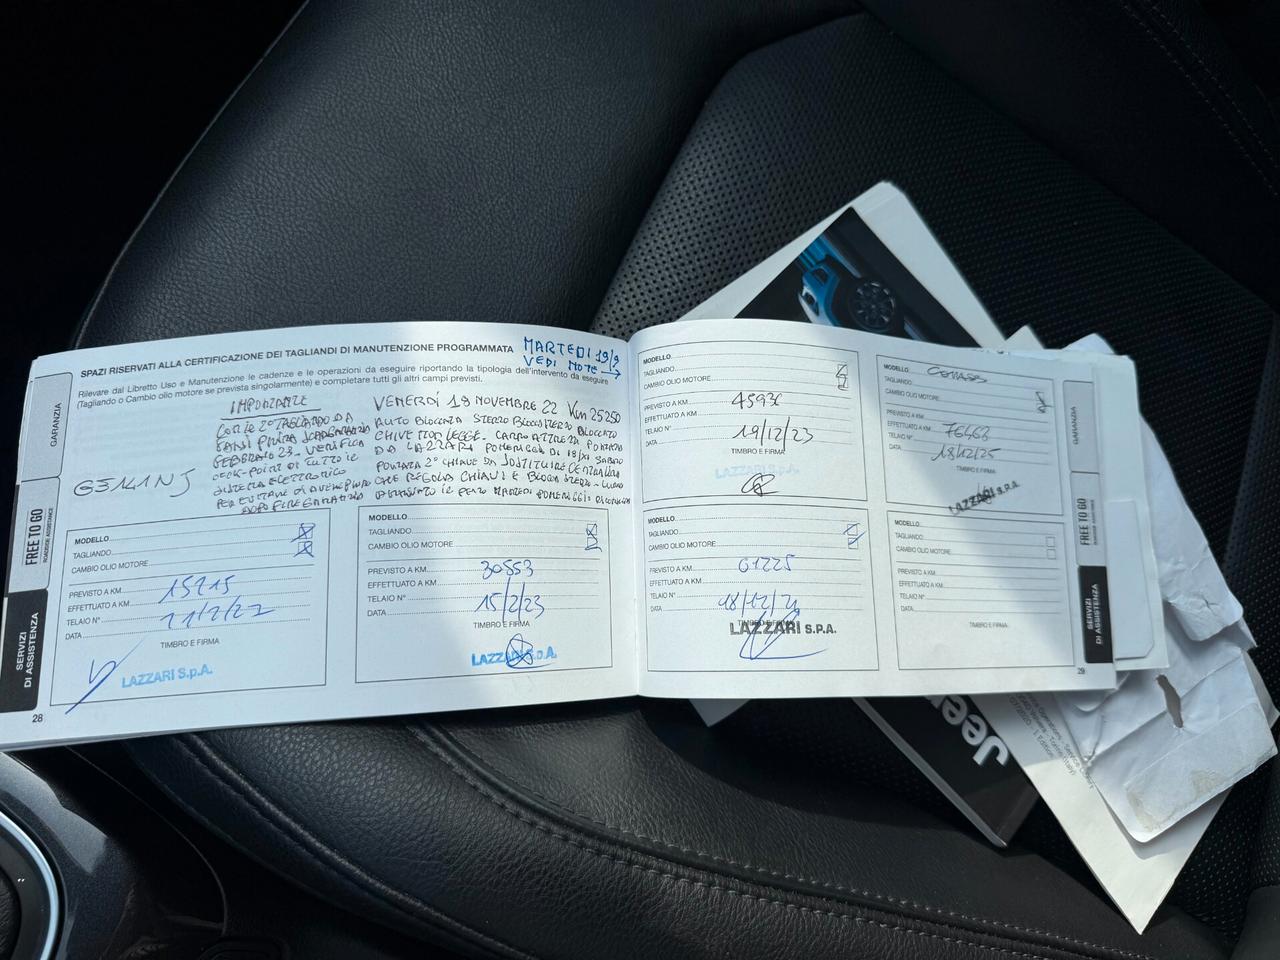 SPAZI RISERVATI ALLA CERTIFICAZIONE DEI TAGLIANDI DI MANUTENZIONE PROGRAMMATA
MARTEDI 19/9
VEDI NOTE →
Rilevare dal Libretto Uso e Manutenzione le cadenze e le operazioni da eseguire riportando la tipologia dell'intervento da eseguire
(Tagliando o Cambio olio motore se prevista singolarmente) e completare tutti gli altri campi previsti.
IMPORTANTE
2° TAGLIANDO DA
PRIMA
FEBBRAIO 23 - VERIFICA
CECK-POINT DI TUTTO IL
SISTEMA ELETTRONICO
PER EVITARE DI AVERE
DOPO FINE GARANZIA
VENERDÌ 18 NOVEMBRE 22 Km 25250
AUTO BLOCCATA STERZO BLOCCATO
CHIAVE NON LEGGE - CARRO ATTREZZI PORTATA
DA LAZZARI POMERIGGIO DI 18/11 SABATO
PORTATA 2° CHIAVE DA SOSTITUIRE CENTRALINA
CHE REGOLA CHIAVI E BLOCCA STERZO - LUNEDI
IL PEZZO MARTEDI POMERIGGIO
GARANZIA
FREE TO GO
ROADSIDE ASSISTANCE
SERVIZI
DI ASSISTENZA
MODELLO
TAGLIANDO
CAMBIO OLIO MOTORE
PREVISTO A KM
EFFETTUATO A KM 15215
TELAIO N°
DATA 11/2/22
TIMBRO E FIRMA
LAZZARI S.p.A.
28
MODELLO
TAGLIANDO
CAMBIO OLIO MOTORE
PREVISTO A KM
EFFETTUATO A KM 30553
TELAIO N°
DATA 15/2/23
TIMBRO E FIRMA
LAZZARI S.p.A.
MODELLO
TAGLIANDO
CAMBIO OLIO MOTORE
PREVISTO A KM
EFFETTUATO A KM 45936
TELAIO N°
DATA 19/12/23
TIMBRO E FIRMA
LAZZARI S.p.A.
MODELLO COMPASS
TAGLIANDO
CAMBIO OLIO MOTORE
PREVISTO A KM
EFFETTUATO A KM 76463
TELAIO N°
DATA 18/12/25
TIMBRO E FIRMA
LAZZARI S.P.A.
MODELLO
TAGLIANDO
CAMBIO OLIO MOTORE
PREVISTO A KM
EFFETTUATO A KM 61225
TELAIO N°
DATA 18/12/24
TIMBRO E FIRMA
LAZZARI S.P.A.
MODELLO
TAGLIANDO
CAMBIO OLIO MOTORE
PREVISTO A KM
EFFETTUATO A KM
TELAIO N°
DATA
TIMBRO E FIRMA
29
GARANZIA
FREE TO GO
ROADSIDE ASSISTANCE
SERVIZI
DI ASSISTENZA
Jeep